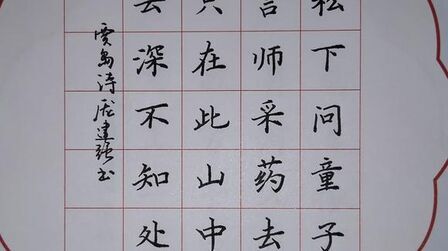 松下问童子
言师采药去
只在此山中
云深不知处
贾岛诗 建强书